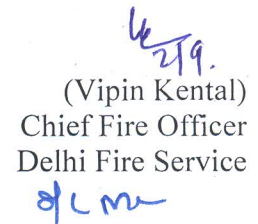 2/9.
(Vipin Kental)
Chief Fire Officer
Delhi Fire Service